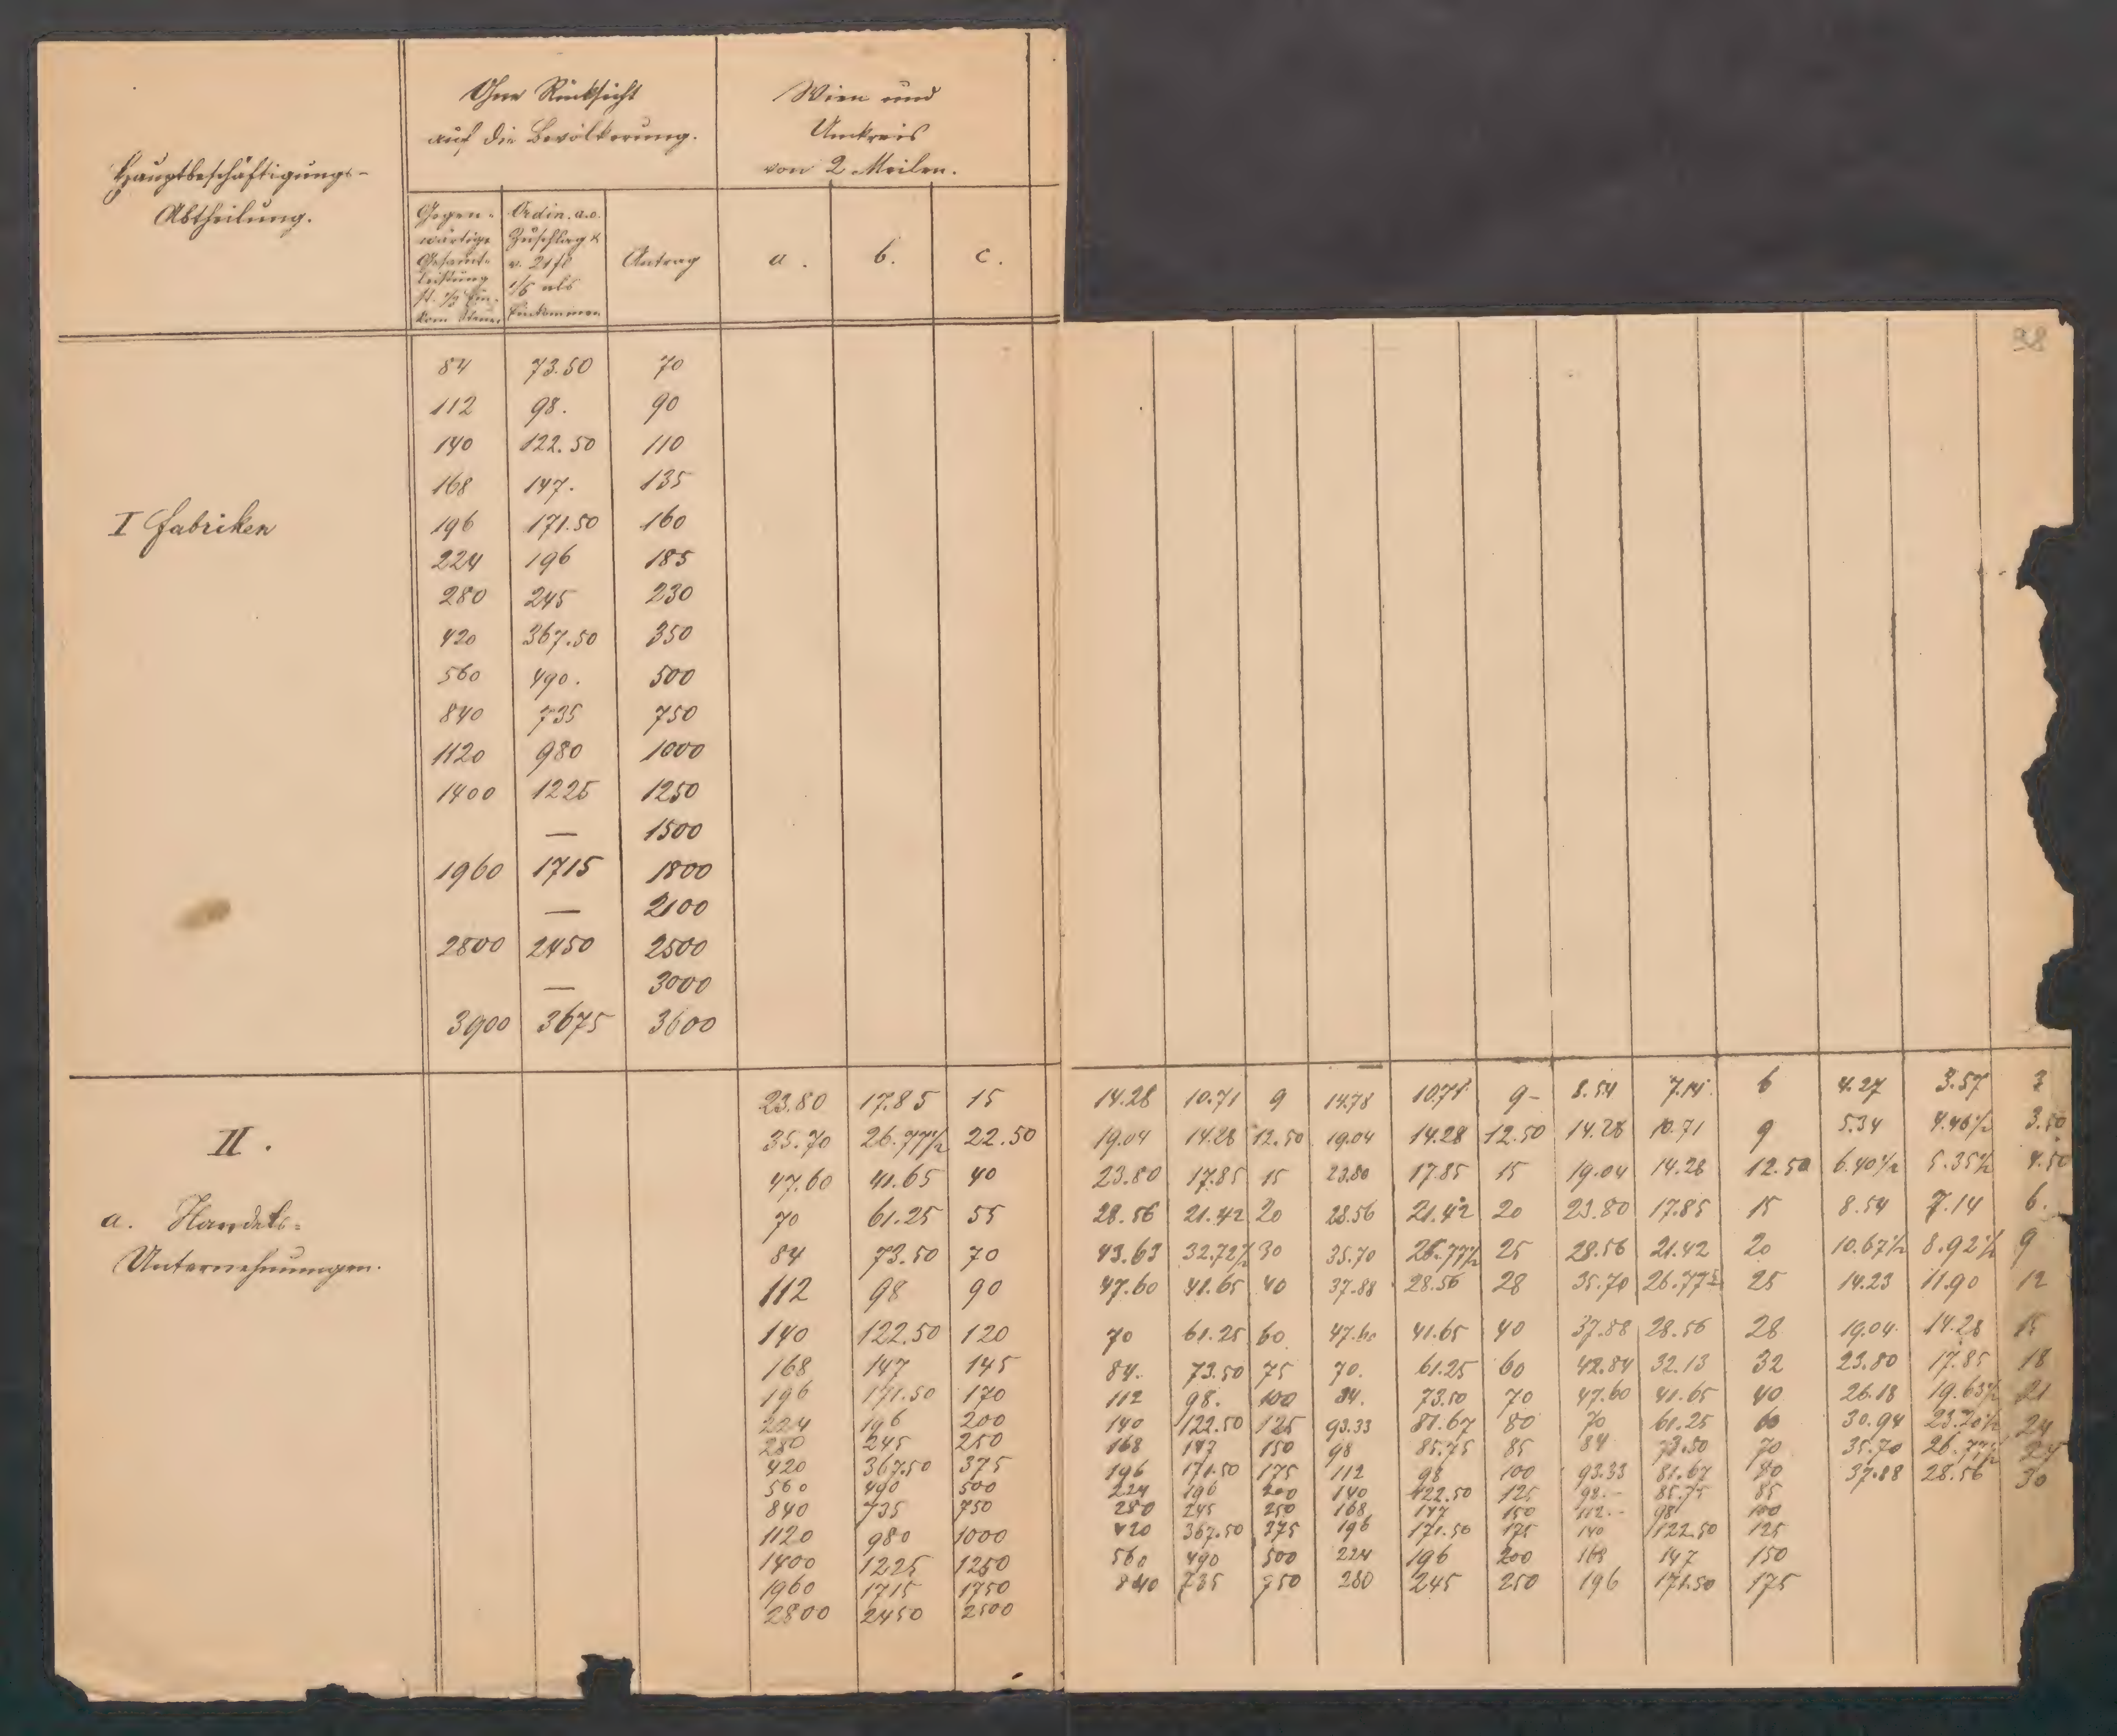 Ohne Rücksicht
auf die Bevölkerung.
Wien und
Umkreis
von 2 Meilen.
Hauptbeschäftigungs-
Abtheilung.
Gegen-
wärtige
Gesamt-
leistung
st. 1/3 Ein-
kom Steuer
Ordin. a.o.
Zuschlag &
v. 21 fl
1/5 als
Einkommen
Antrag
a. b. c.
38
I Fabriken
84 73.50 70
112 98. 90
140 122.50 110
168 147. 135
196 171.50 160
224 196 185
280 245 230
420 367.50 350
560 490. 500
840 735 750
1120 980 1000
1400 1225 1250
— 1500
1960 1715 1800
— 2100
2800 2450 2500
— 3000
3900 3675 3600
II.
a. Handels-
Unternehmungen.
23.80 17.85 15 14.28 10.71 9 14.78 10.71 9- 8.54 7.14 6 4.27 3.57 3
35.70 26.77½ 22.50 19.04 14.28 12.50 19.04 14.28 12.50 14.28 10.71 9 5.34 4.46½ 3.50
47.60 41.65 40 23.80 17.85 15 23.80 17.85 15 19.04 14.28 12.50 6.40½ 5.35½ 4.50
70 61.25 55 28.56 21.42 20 28.56 21.42 20 23.80 17.85 15 8.54 7.14 6.
84 73.50 70 43.63 32.72½ 30 35.70 26.77½ 25 28.56 21.42 20 10.67½ 8.92½ 9
112 98 90 47.60 41.65 40 37.88 28.56 28 35.70 26.77½ 25 14.23 11.90 12
140 122.50 120 70 61.25 60 47.60 41.65 40 37.88 28.56 28 19.04 14.28 15
168 147 145 84. 73.50 75 70. 61.25 60 42.84 32.13 32 23.80 17.85 18
196 171.50 170 112 98. 100 84. 73.50 70 47.60 41.65 40 26.18 19.63½ 21
224 196 200 140 122.50 125 93.33 81.67 80 70 61.25 60 30.94 23.20½ 24
280 245 250 168 147 150 98 85.75 85 84 73.50 70 35.70 26.77½ 27
420 367.50 375 196 171.50 175 112 98 100 93.33 81.67 80 37.88 28.56 30
560 490 500 224 196 200 140 122.50 125 98.- 85.75 85
840 735 750 280 245 250 168 147 150 112.- 98 100
1120 980 1000 420 367.50 375 196 171.50 175 140 122.50 125
1400 1225 1250 560 490 500 224 196 200 168 147 150
1960 1715 1750 840 735 750 280 245 250 196 171.50 175
2800 2450 2500